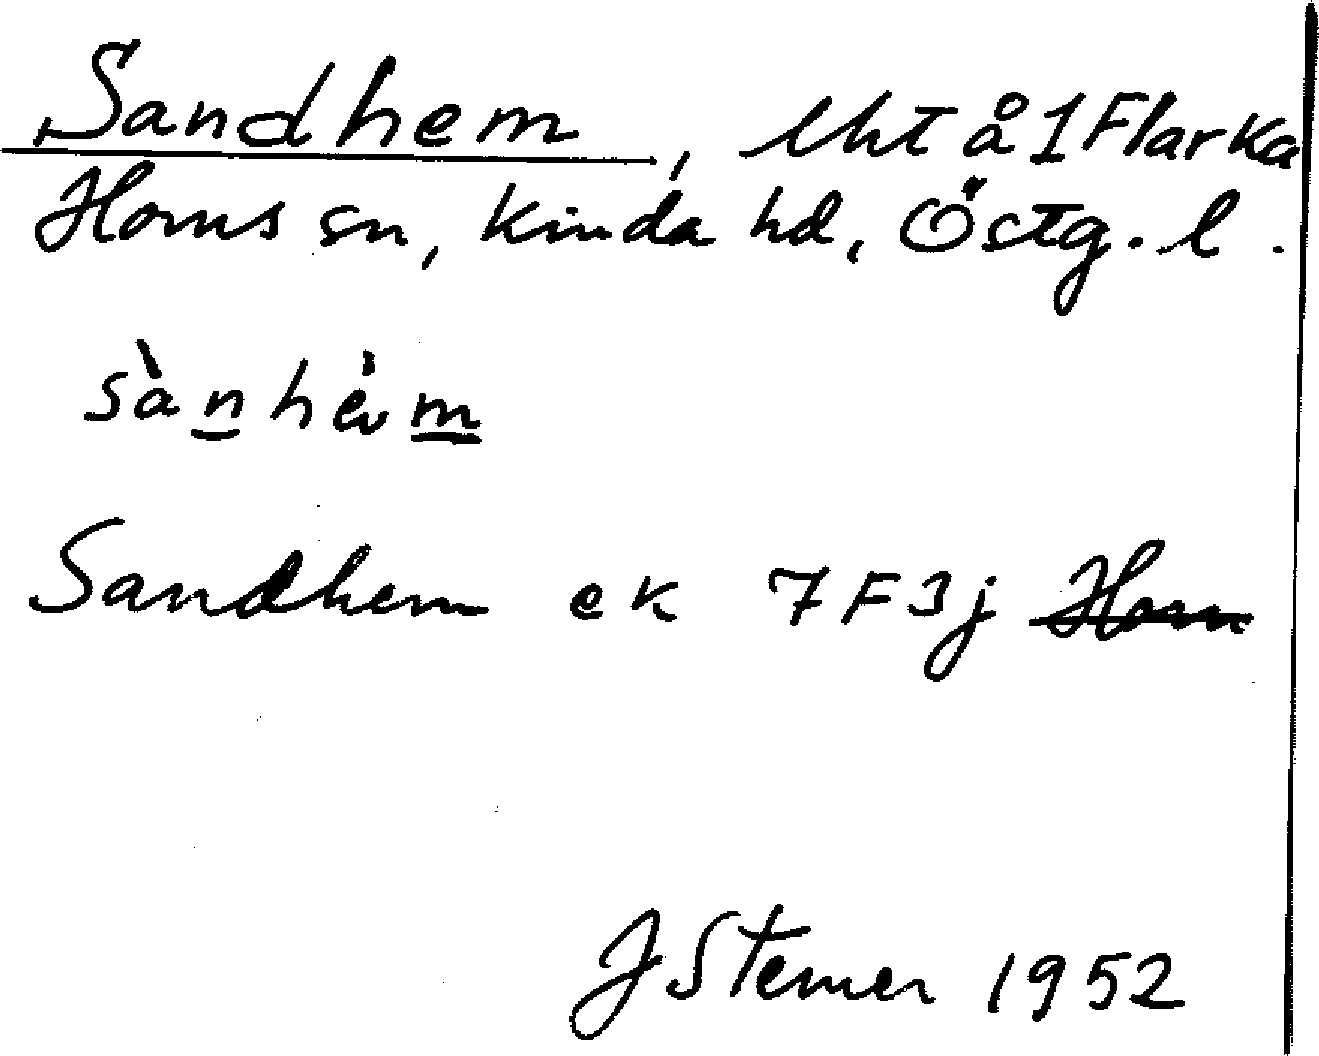 Sandhem, lht å 1 Flarka
Horns sn, Kinda hd, Östg. l.
sànhèm
Sandhem ek 7F3j Horn
J Sterner 1952